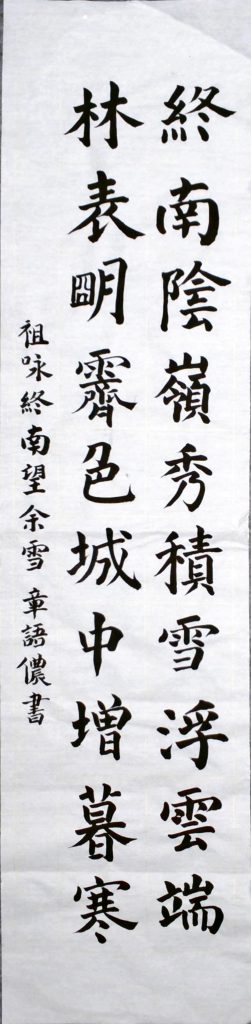 終南陰嶺秀積雪浮雲端
林表明霽色城中增暮寒
祖咏終南望余雪 章語儂書